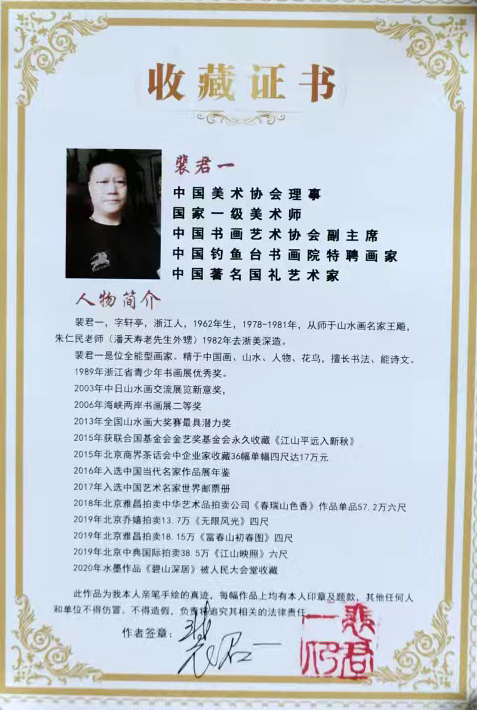 收藏证书
裴君一
中国美术协会理事
国家一级美术师
中国书画艺术协会副主席
中国钓鱼台书画院特聘画家
中国著名国礼艺术家
人物简介
裴君一，字轩亭，浙江人，1962年生，1978-1981年，从师于山水画名家王飚，
朱仁民老师（潘天寿老先生外甥）1982年去浙美深造。
裴君一是位全能型画家。精于中国画、山水、人物、花鸟，擅长书法、能诗文。
1989年浙江省青少年书画展优秀奖。
2003年中日山水画交流展览新意奖，
2006年海峡两岸书画展二等奖
2013年全国山水画大奖赛最具潜力奖
2015年获联合国基金会金艺奖基金会永久收藏《江山平远入新秋》
2015年北京商界茶话会中企业家收藏36幅单幅四尺达17万元
2016年入选中国当代名家作品展年鉴
2017年入选中国艺术名家世界邮票册
2018年北京雅昌拍卖中华艺术品拍卖公司《春瑞山色香》作品单品57.2万六尺
2019年北京乔嬉拍卖13.7万《无限风光》四尺
2019年北京雅昌拍卖18.15万《富春山初春图》四尺
2019年北京中典国际拍卖38.5万《江山映照》六尺
2020年水墨作品《碧山深居》被人民大会堂收藏
此作品为我本人亲笔手绘的真迹，每幅作品上均有本人印章及题款，其他任何人
和单位不得仿冒、不得造假，负责将追究其相关的法律责任
作者签章：裴君一
裴君一印